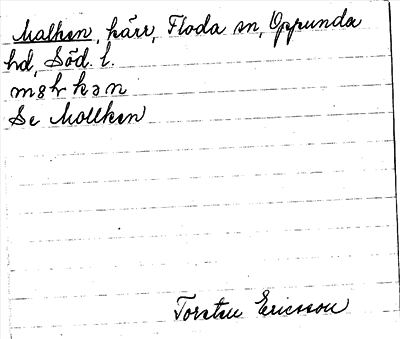 Malken, kärr, Floda sn, Oppunda
hd, Söd. l.
Se Mollken
Torsten Ericsson